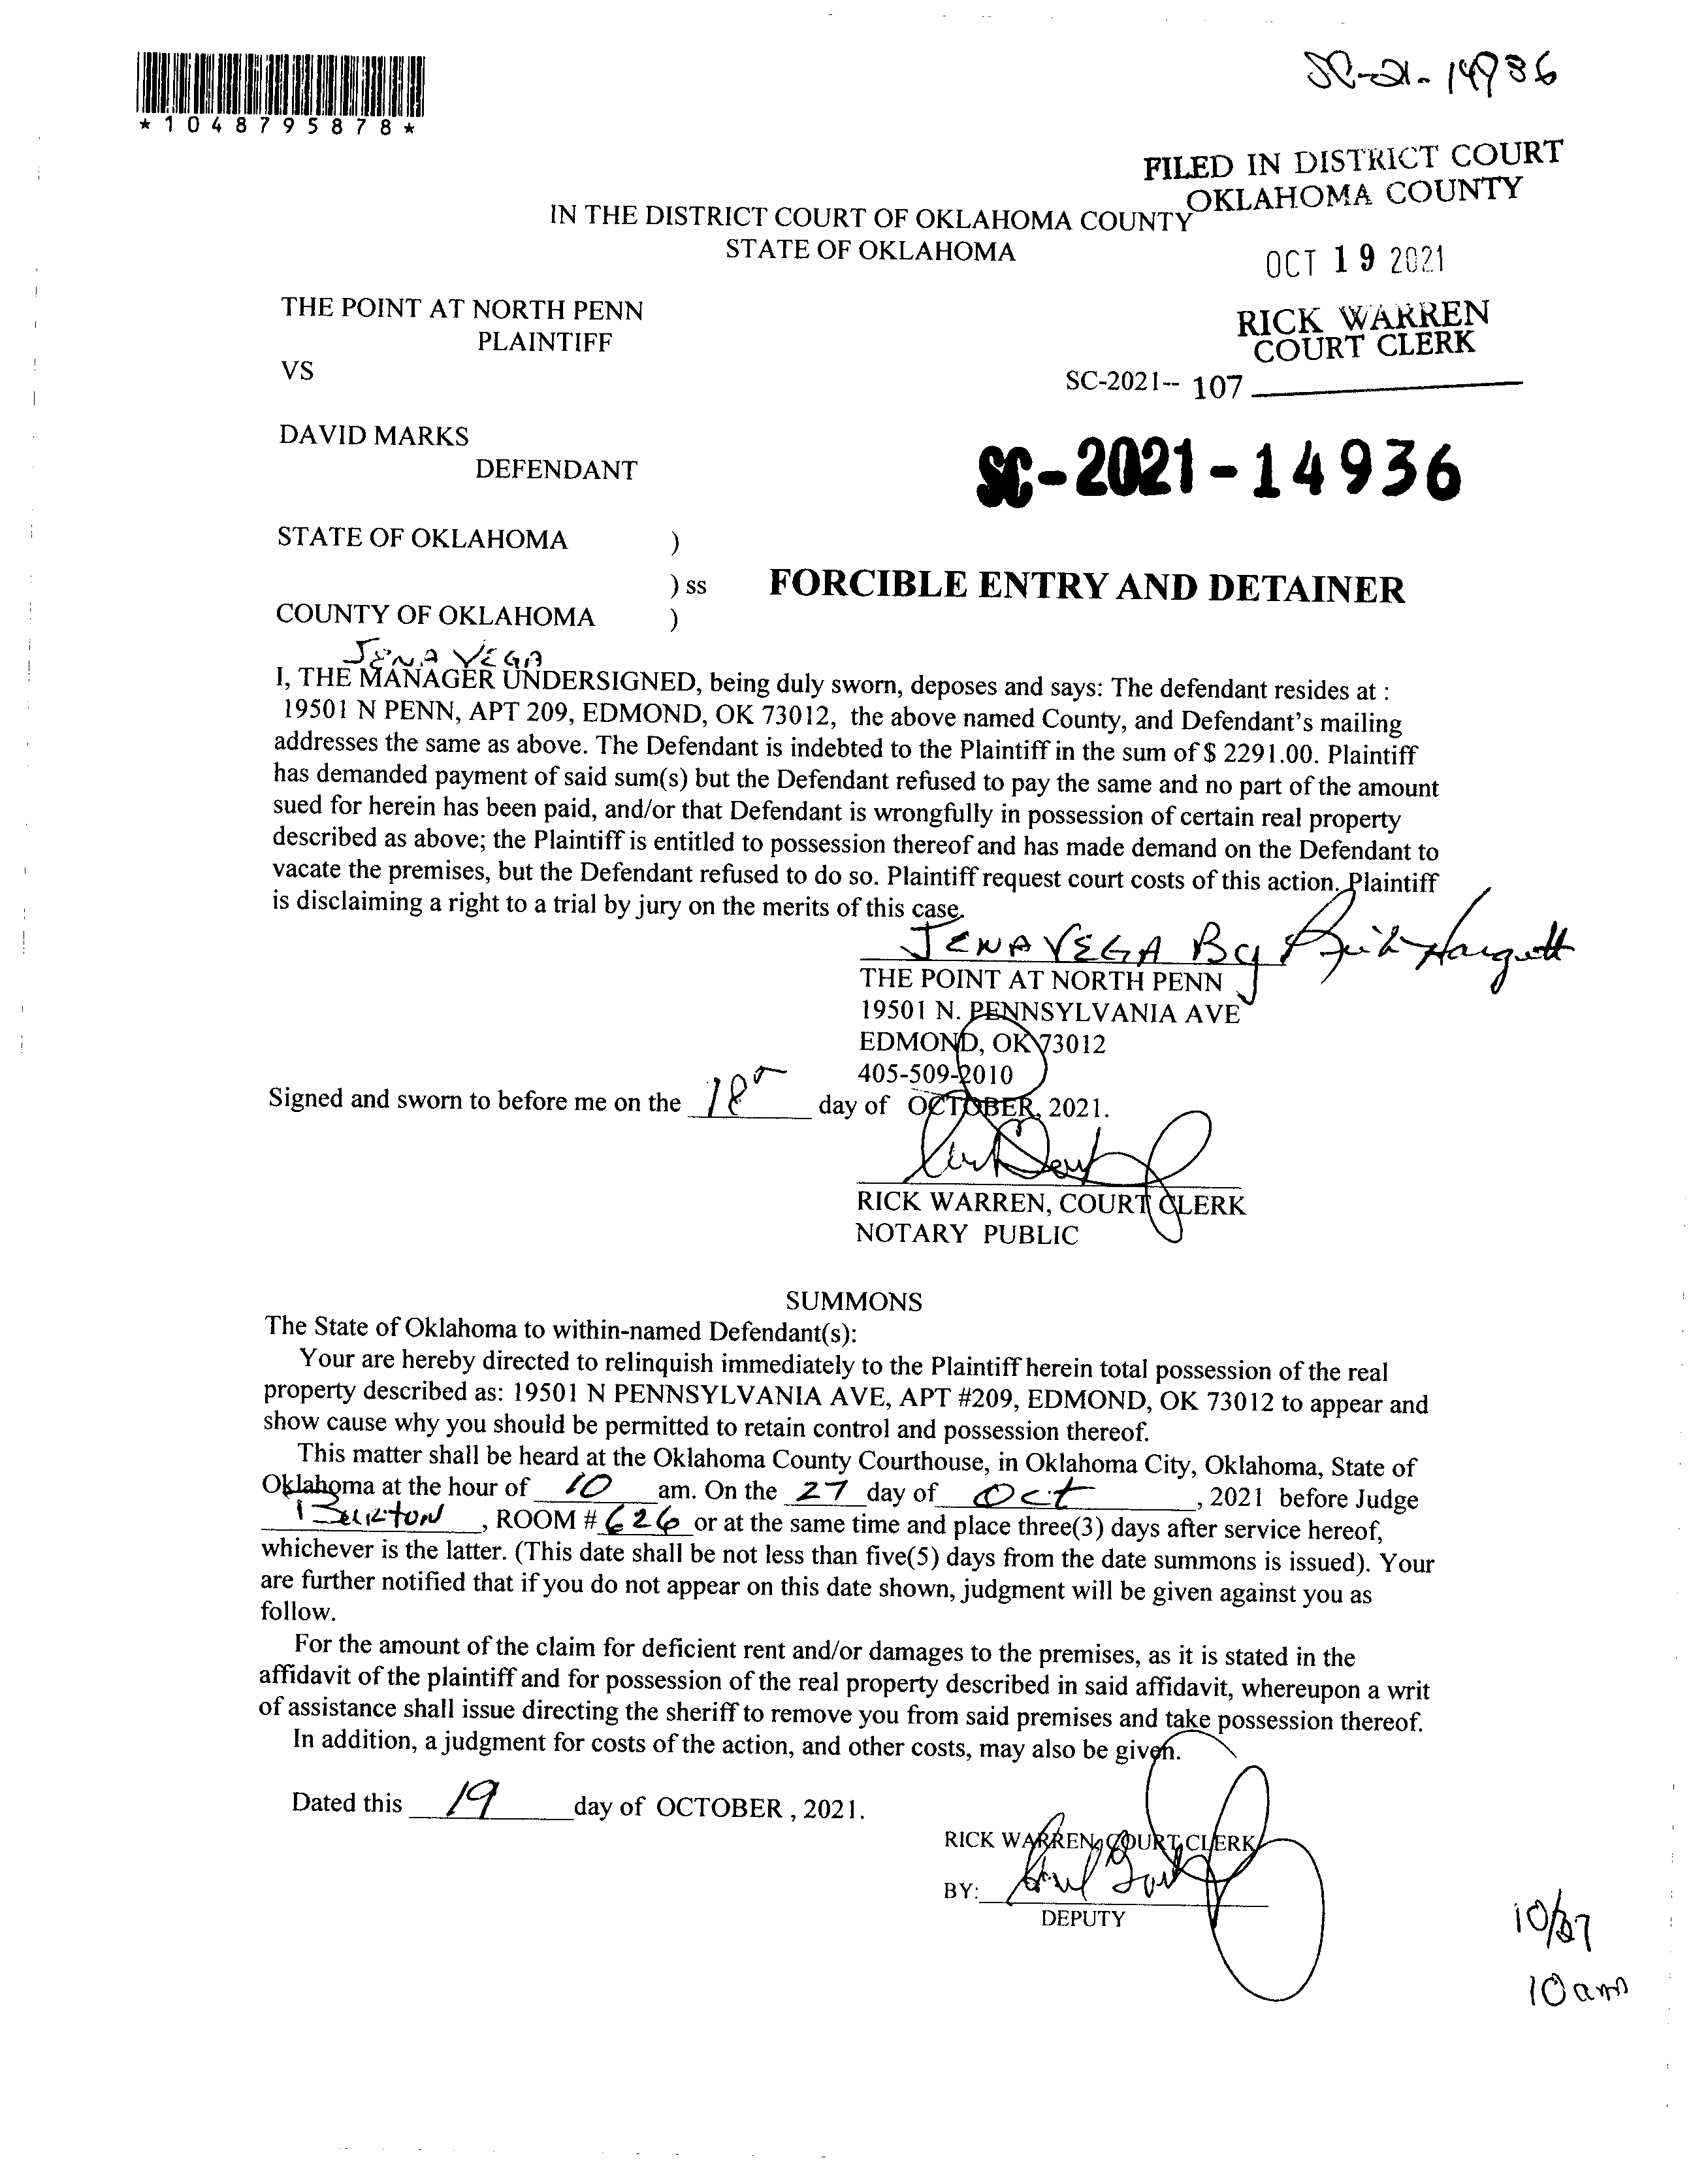 SC-21-14936
*1048795878*
FILED IN DISTRICT COURT
OKLAHOMA COUNTY
IN THE DISTRICT COURT OF OKLAHOMA COUNTY
STATE OF OKLAHOMA
OCT 19 2021
THE POINT AT NORTH PENN
PLAINTIFF
RICK WARREN
COURT CLERK
VS
SC-2021-- 107
DAVID MARKS
DEFENDANT
SC-2021-14936
STATE OF OKLAHOMA )
) ss FORCIBLE ENTRY AND DETAINER
COUNTY OF OKLAHOMA )
JENA VEGA
I, THE MANAGER UNDERSIGNED, being duly sworn, deposes and says: The defendant resides at :
19501 N PENN, APT 209, EDMOND, OK 73012, the above named County, and Defendant's mailing
addresses the same as above. The Defendant is indebted to the Plaintiff in the sum of $ 2291.00. Plaintiff
has demanded payment of said sum(s) but the Defendant refused to pay the same and no part of the amount
sued for herein has been paid, and/or that Defendant is wrongfully in possession of certain real property
described as above; the Plaintiff is entitled to possession thereof and has made demand on the Defendant to
vacate the premises, but the Defendant refused to do so. Plaintiff request court costs of this action. Plaintiff
is disclaiming a right to a trial by jury on the merits of this case.
JENA VEGA By Hargett
THE POINT AT NORTH PENN
19501 N. PENNSYLVANIA AVE
EDMOND, OK 73012
405-509-2010
Signed and sworn to before me on the 18 day of OCTOBER, 2021.
RICK WARREN, COURT CLERK
NOTARY PUBLIC
SUMMONS
The State of Oklahoma to within-named Defendant(s):
Your are hereby directed to relinquish immediately to the Plaintiff herein total possession of the real
property described as: 19501 N PENNSYLVANIA AVE, APT #209, EDMOND, OK 73012 to appear and
show cause why you should be permitted to retain control and possession thereof.
This matter shall be heard at the Oklahoma County Courthouse, in Oklahoma City, Oklahoma, State of
Oklahoma at the hour of 10 am. On the 27 day of Oct, 2021 before Judge
Burton, ROOM # 626 or at the same time and place three(3) days after service hereof,
whichever is the latter. (This date shall be not less than five(5) days from the date summons is issued). Your
are further notified that if you do not appear on this date shown, judgment will be given against you as
follow.
For the amount of the claim for deficient rent and/or damages to the premises, as it is stated in the
affidavit of the plaintiff and for possession of the real property described in said affidavit, whereupon a writ
of assistance shall issue directing the sheriff to remove you from said premises and take possession thereof.
In addition, a judgment for costs of the action, and other costs, may also be given.
Dated this 19 day of OCTOBER , 2021.
RICK WARREN, COURT CLERK
BY:
DEPUTY
10/27
10am